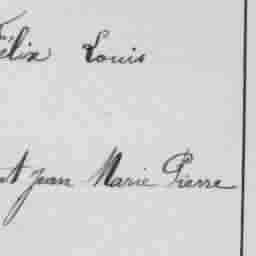 Félix Louis
Jean Marie Pierre